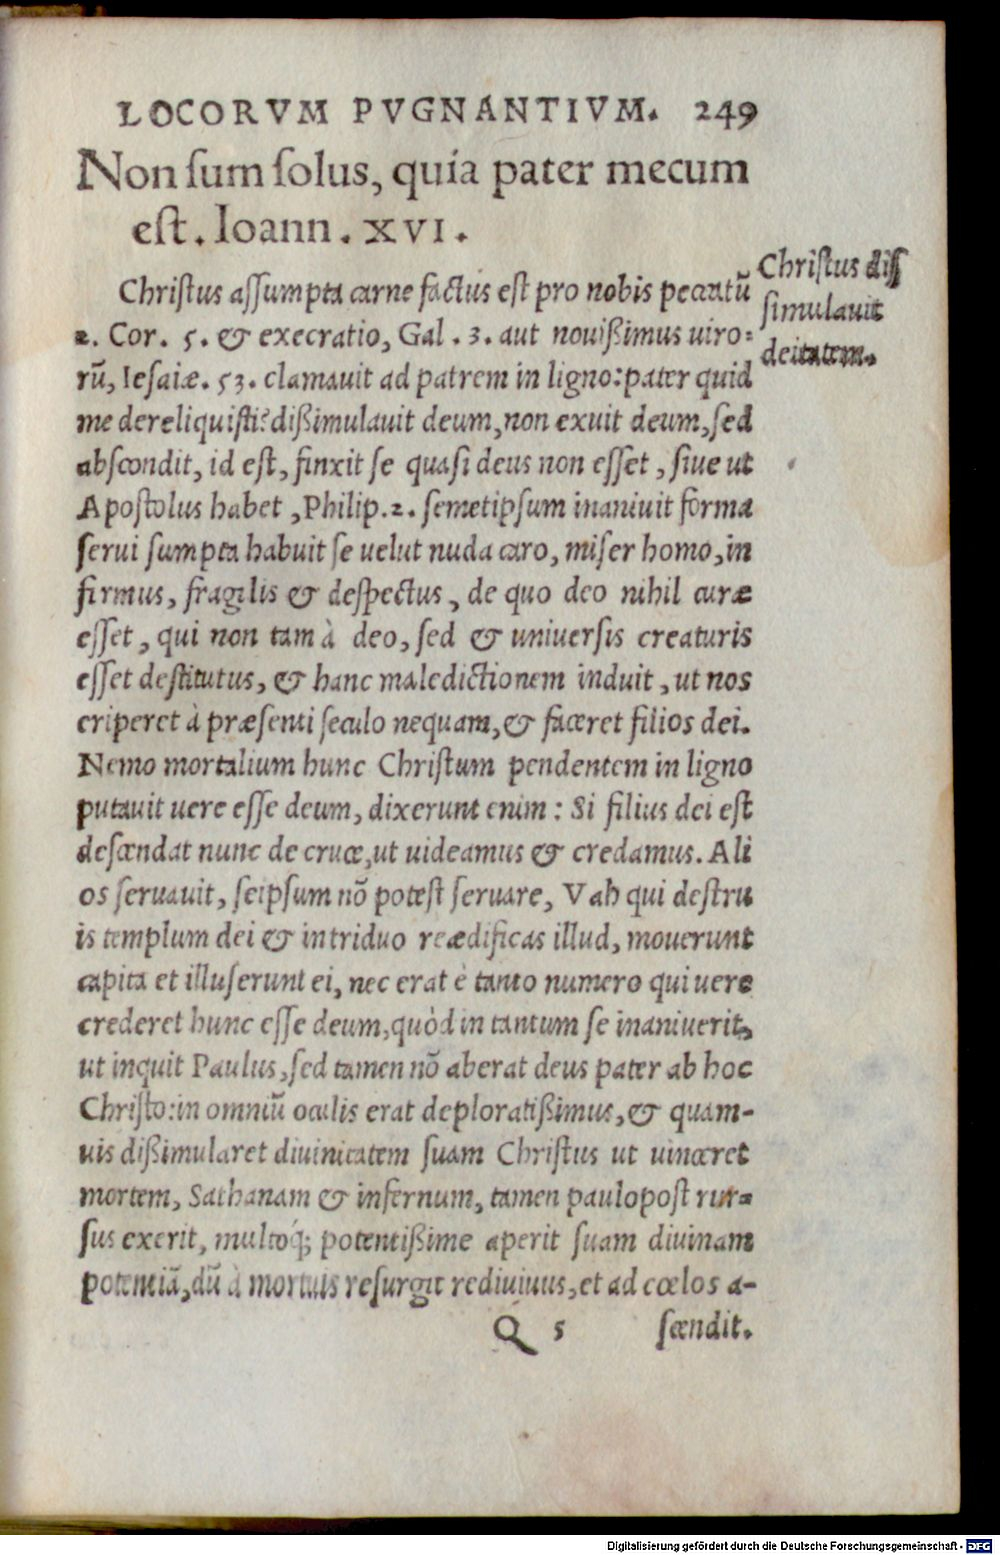 LOCORVM PVGNANTIVM. 249
Non ſum ſolus, quia pater mecum
eſt. Ioann. XVI.
Chriſtus diſſ
ſimulauit
deitatem.
Chriſtus aſſumpta carne factus eſt pro nobis peccatū
2. Cor. 5. & execratio, Gal. 3. aut nouißimus uiro=
rū, Ieſaiæ. 53. clamauit ad patrem in ligno: pater quid
me dereliquiſti? dißimulauit deum, non exuit deum, ſed
abſcondit, id eſt, finxit ſe quaſi deus non eſſet, ſiue ut
Apoſtolus habet, Philip. 2. ſemetipſum inaniuit forma
ſerui ſumpta habuit ſe uelut nuda caro, miſer homo, in
firmus, fragilis & deſpectus, de quo deo nihil curæ
eſſet, qui non tam à deo, ſed & uniuerſis creaturis
eſſet deſtitutus, & hanc maledictionem induit, ut nos
eriperet à præſenti ſeculo nequam, & faceret filios dei.
Nemo mortalium hunc Chriſtum pendentem in ligno
putauit uere eſſe deum, dixerunt enim: Si filius dei eſt
deſcendat nunc de cruce, ut uideamus & credamus. Ali
os ſeruauit, ſeipſum nō poteſt ſeruare, Vah qui deſtru
is templum dei & in triduo reædificas illud, mouerunt
capita et illuſerunt ei, nec erat è tanto numero qui uere
crederet hunc eſſe deum, quòd in tantum ſe inaniuerit,
ut inquit Paulus, ſed tamen nō aberat deus pater ab hoc
Chriſto: in omniū oculis erat deploratißimus, & quam-
uis dißimularet diuinitatem ſuam Chriſtus ut uinceret
mortem, Sathanam & infernum, tamen paulopoſt rur=
ſus exerit, multoq́; potentißime aperit ſuam diuinam
potentiā, dū à mortuis reſurgit rediuiuus, et ad cœlos a-
Q 5 ſcendit.
Digitalisierung gefördert durch die Deutsche Forschungsgemeinschaft - DFG